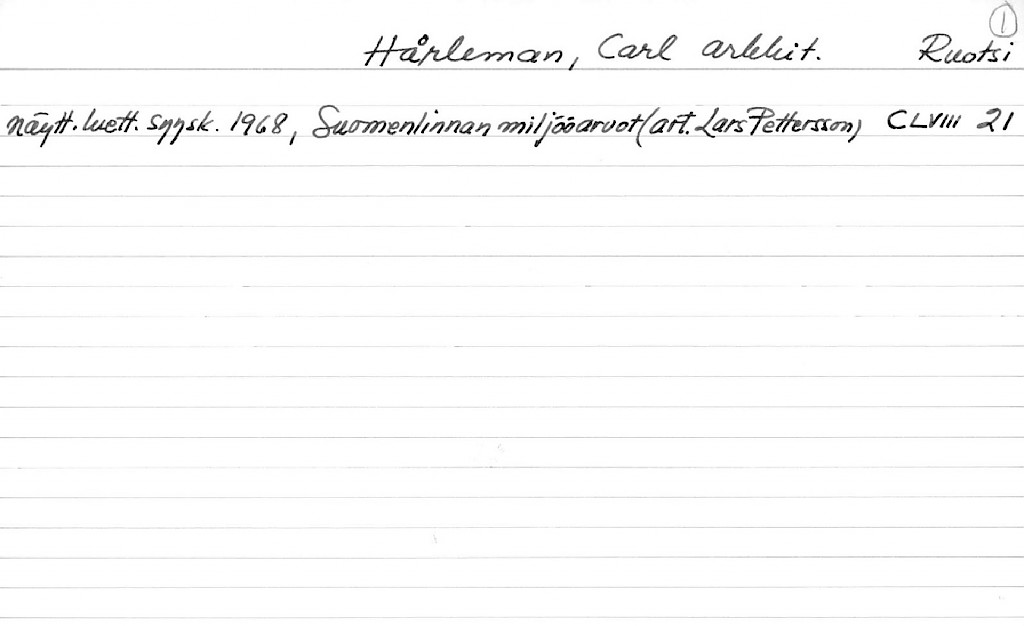 1
Hårleman, Carl arkkit. Ruotsi
näytt. luett. syysk. 1968, Suomenlinnan miljööarvot (art. Lars Pettersson) CLVIII 21